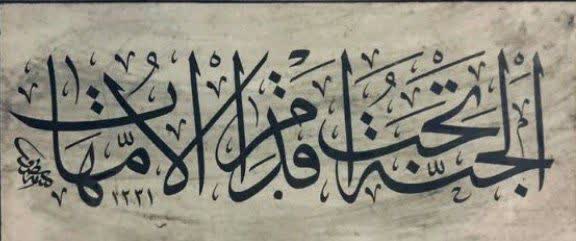 الجنّة تحت اقدام الاُمّهات
١٢٣١